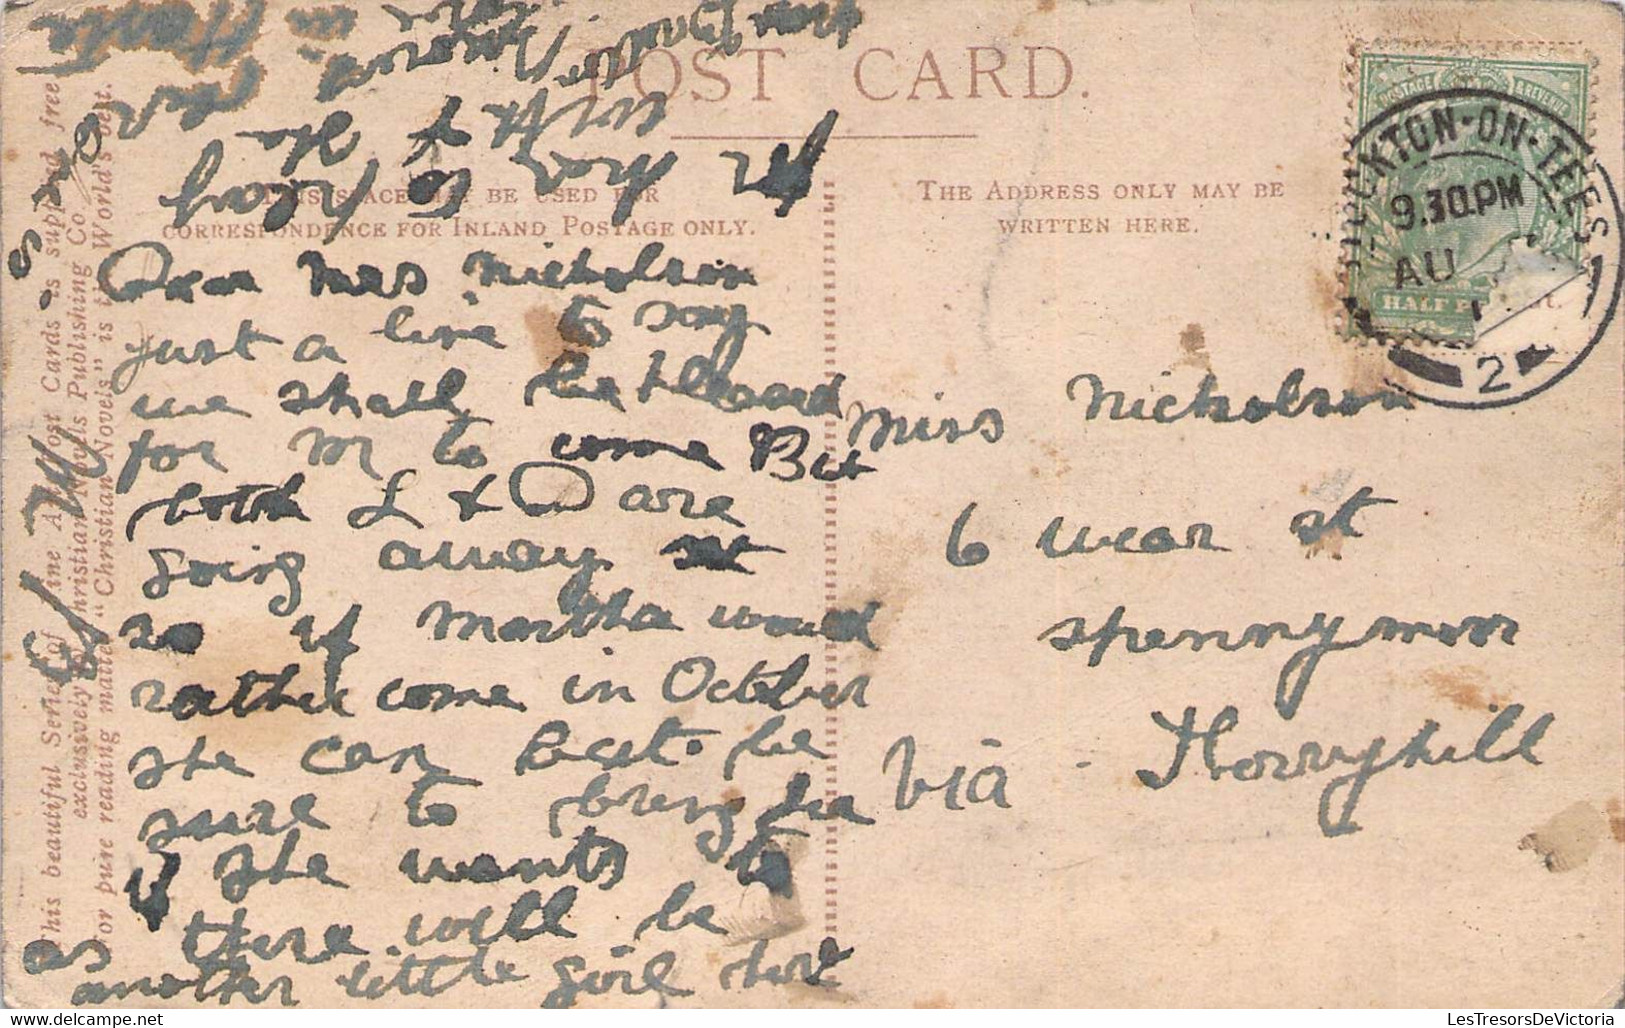 POST CARD.
THIS SPACE MAY BE USED FOR
CORRESPONDENCE FOR INLAND POSTAGE ONLY.
THE ADDRESS ONLY MAY BE
WRITTEN HERE.
This beautiful Series of Fine Art Post Cards is supplied free
exclusively by Christian Novels Publishing Co.
For pure reading matter "Christian Novels" is the World's best.
Dear Mrs Nicholson
just a line to say
we shall be
for M to come But
both L & D are
going away
so if Martha would
rather come in October
she can but be
sure to bring her
if she wants to
as there will be
another little girl
for her to play
with &
in
Miss Nicholson
6 wear st
spennymoor
via Ferryhill
POSTAGE & REVENUE
HALF
STOCKTON-ON-TEES
9.30PM
AU
2
LesTresorsDeVictoria
LesTresorsDeVictoria.com